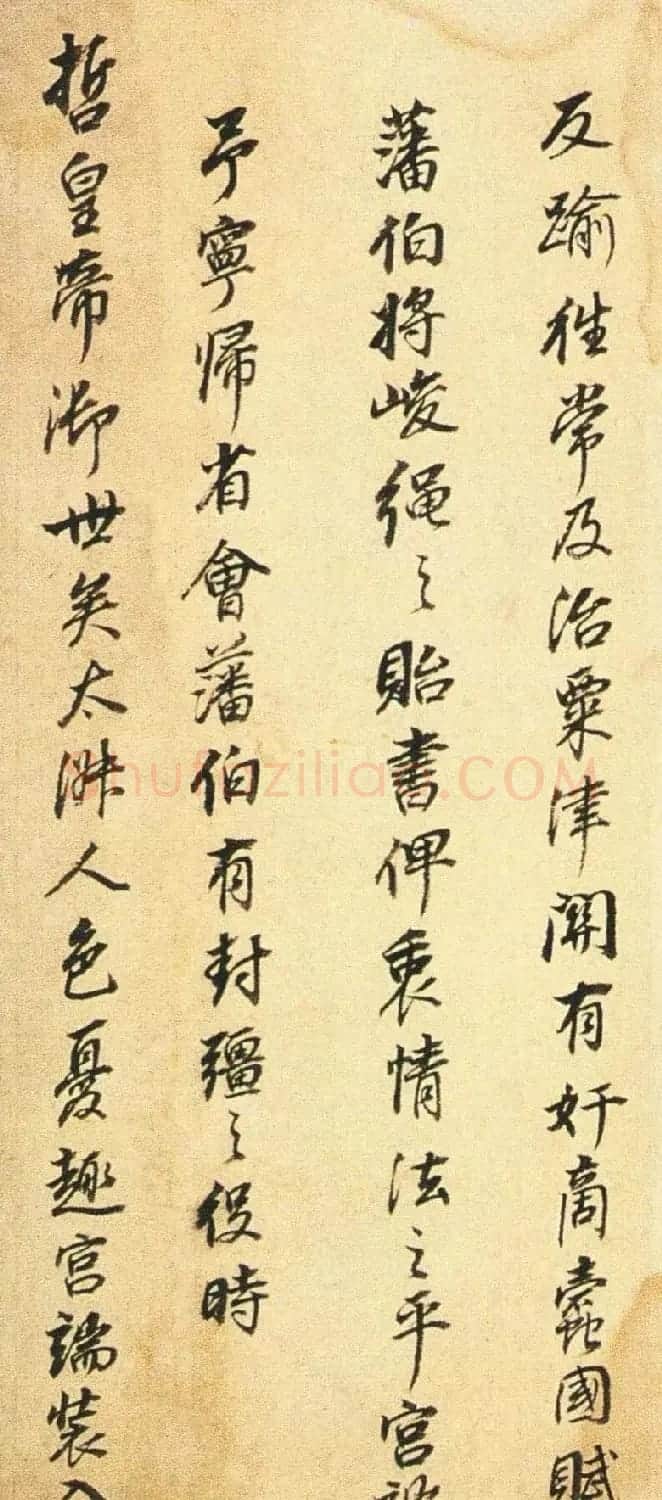 反踰往常及治粟津關有奸商蠹國賦
藩伯將峻繩之貽書俾衷情法之平宮
予寧歸省會藩伯有封疆之役時
哲皇帝御世矣太淑人色憂趣宮端裝入